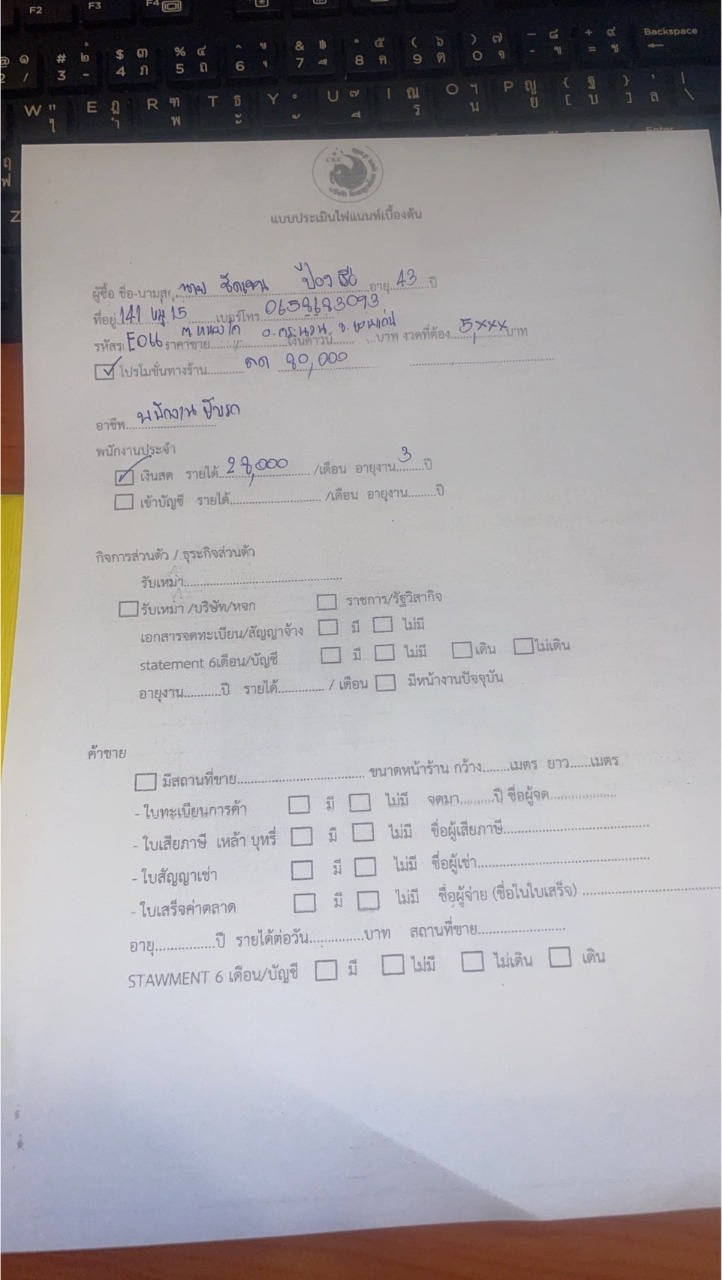 แบบประเมินไฟแนนท์เบื้องต้น
ผู้ซื้อ ชื่อ-นามสกุ นาย อายุ 43 ปี
ที่อยู่ 141 หมู่ 15 เบอร์โทร 0658683093
รหัสร E066 ราคาขาย อ.กระนวน จ.ขอนแก่น เงินดาวน์ บาท งวดที่ต้อง 5,xxx บาท
☑ โปรโมชั่นทางร้าน ลด 90,000
อาชีพ พนักงาน ขับรถ
พนักงานประจำ
☑ เงินสด รายได้ 28,000 /เดือน อายุงาน 3 ปี
☐ เข้าบัญชี รายได้ /เดือน อายุงาน ปี
กิจการส่วนตัว / ธุระกิจส่วนตัว
รับเหมา
☐ รับเหมา /บริษัท/หจก ☐ ราชการ/รัฐวิสากิจ
เอกสารจดทะเบียน/สัญญาจ้าง ☐ มี ☐ ไม่มี
statement 6เดือน/บัญชี ☐ มี ☐ ไม่มี ☐ เดิน ☐ ไม่เดิน
อายุงาน ปี รายได้ / เดือน ☐ มีหน้างานปัจจุบัน
ค้าขาย
☐ มีสถานที่ขาย ขนาดหน้าร้าน กว้าง เมตร ยาว เมตร
- ใบทะเบียนการค้า ☐ มี ☐ ไม่มี จดมา ปี ชื่อผู้จด
- ใบเสียภาษี เหล้า บุหรี่ ☐ มี ☐ ไม่มี ชื่อผู้เสียภาษี
- ใบสัญญาเช่า ☐ มี ☐ ไม่มี ชื่อผู้เช่า
- ใบเสร็จค่าตลาด ☐ มี ☐ ไม่มี ชื่อผู้จ่าย (ชื่อในใบเสร็จ)
อายุ ปี รายได้ต่อวัน บาท สถานที่ขาย
STAWMENT 6 เดือน/บัญชี ☐ มี ☐ ไม่มี ☐ ไม่เดิน ☐ เดิน